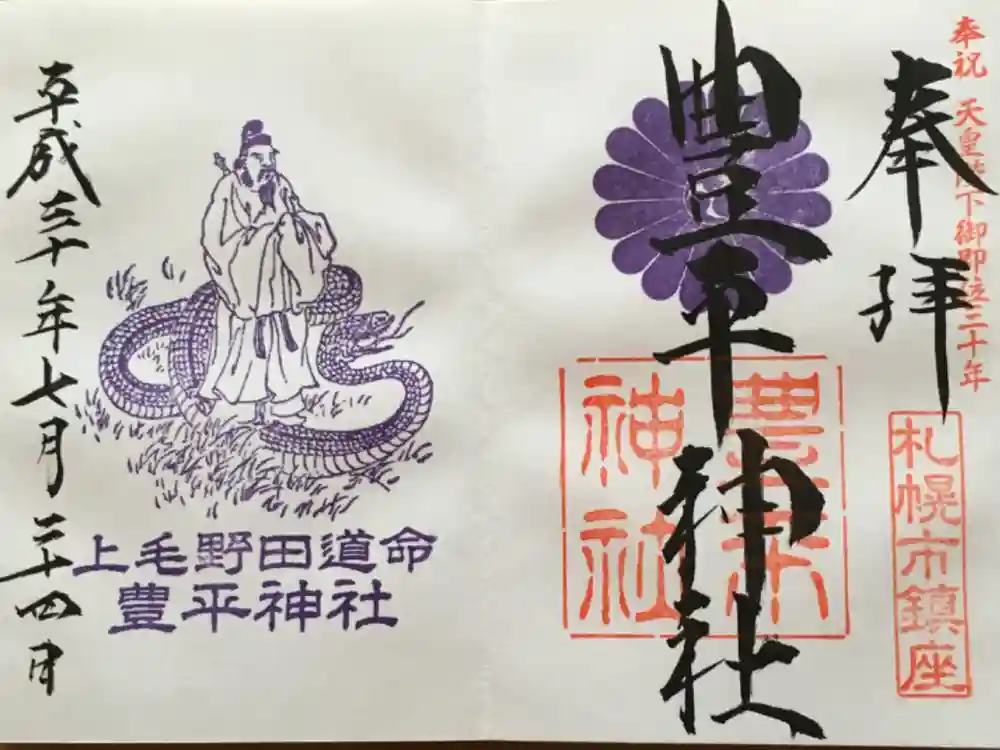 奉祝 天皇陛下御即位三十年
奉拝
札幌市鎮座
豊平神社
豊平神社
上毛野田道命
豊平神社
平成三十年七月二十四日